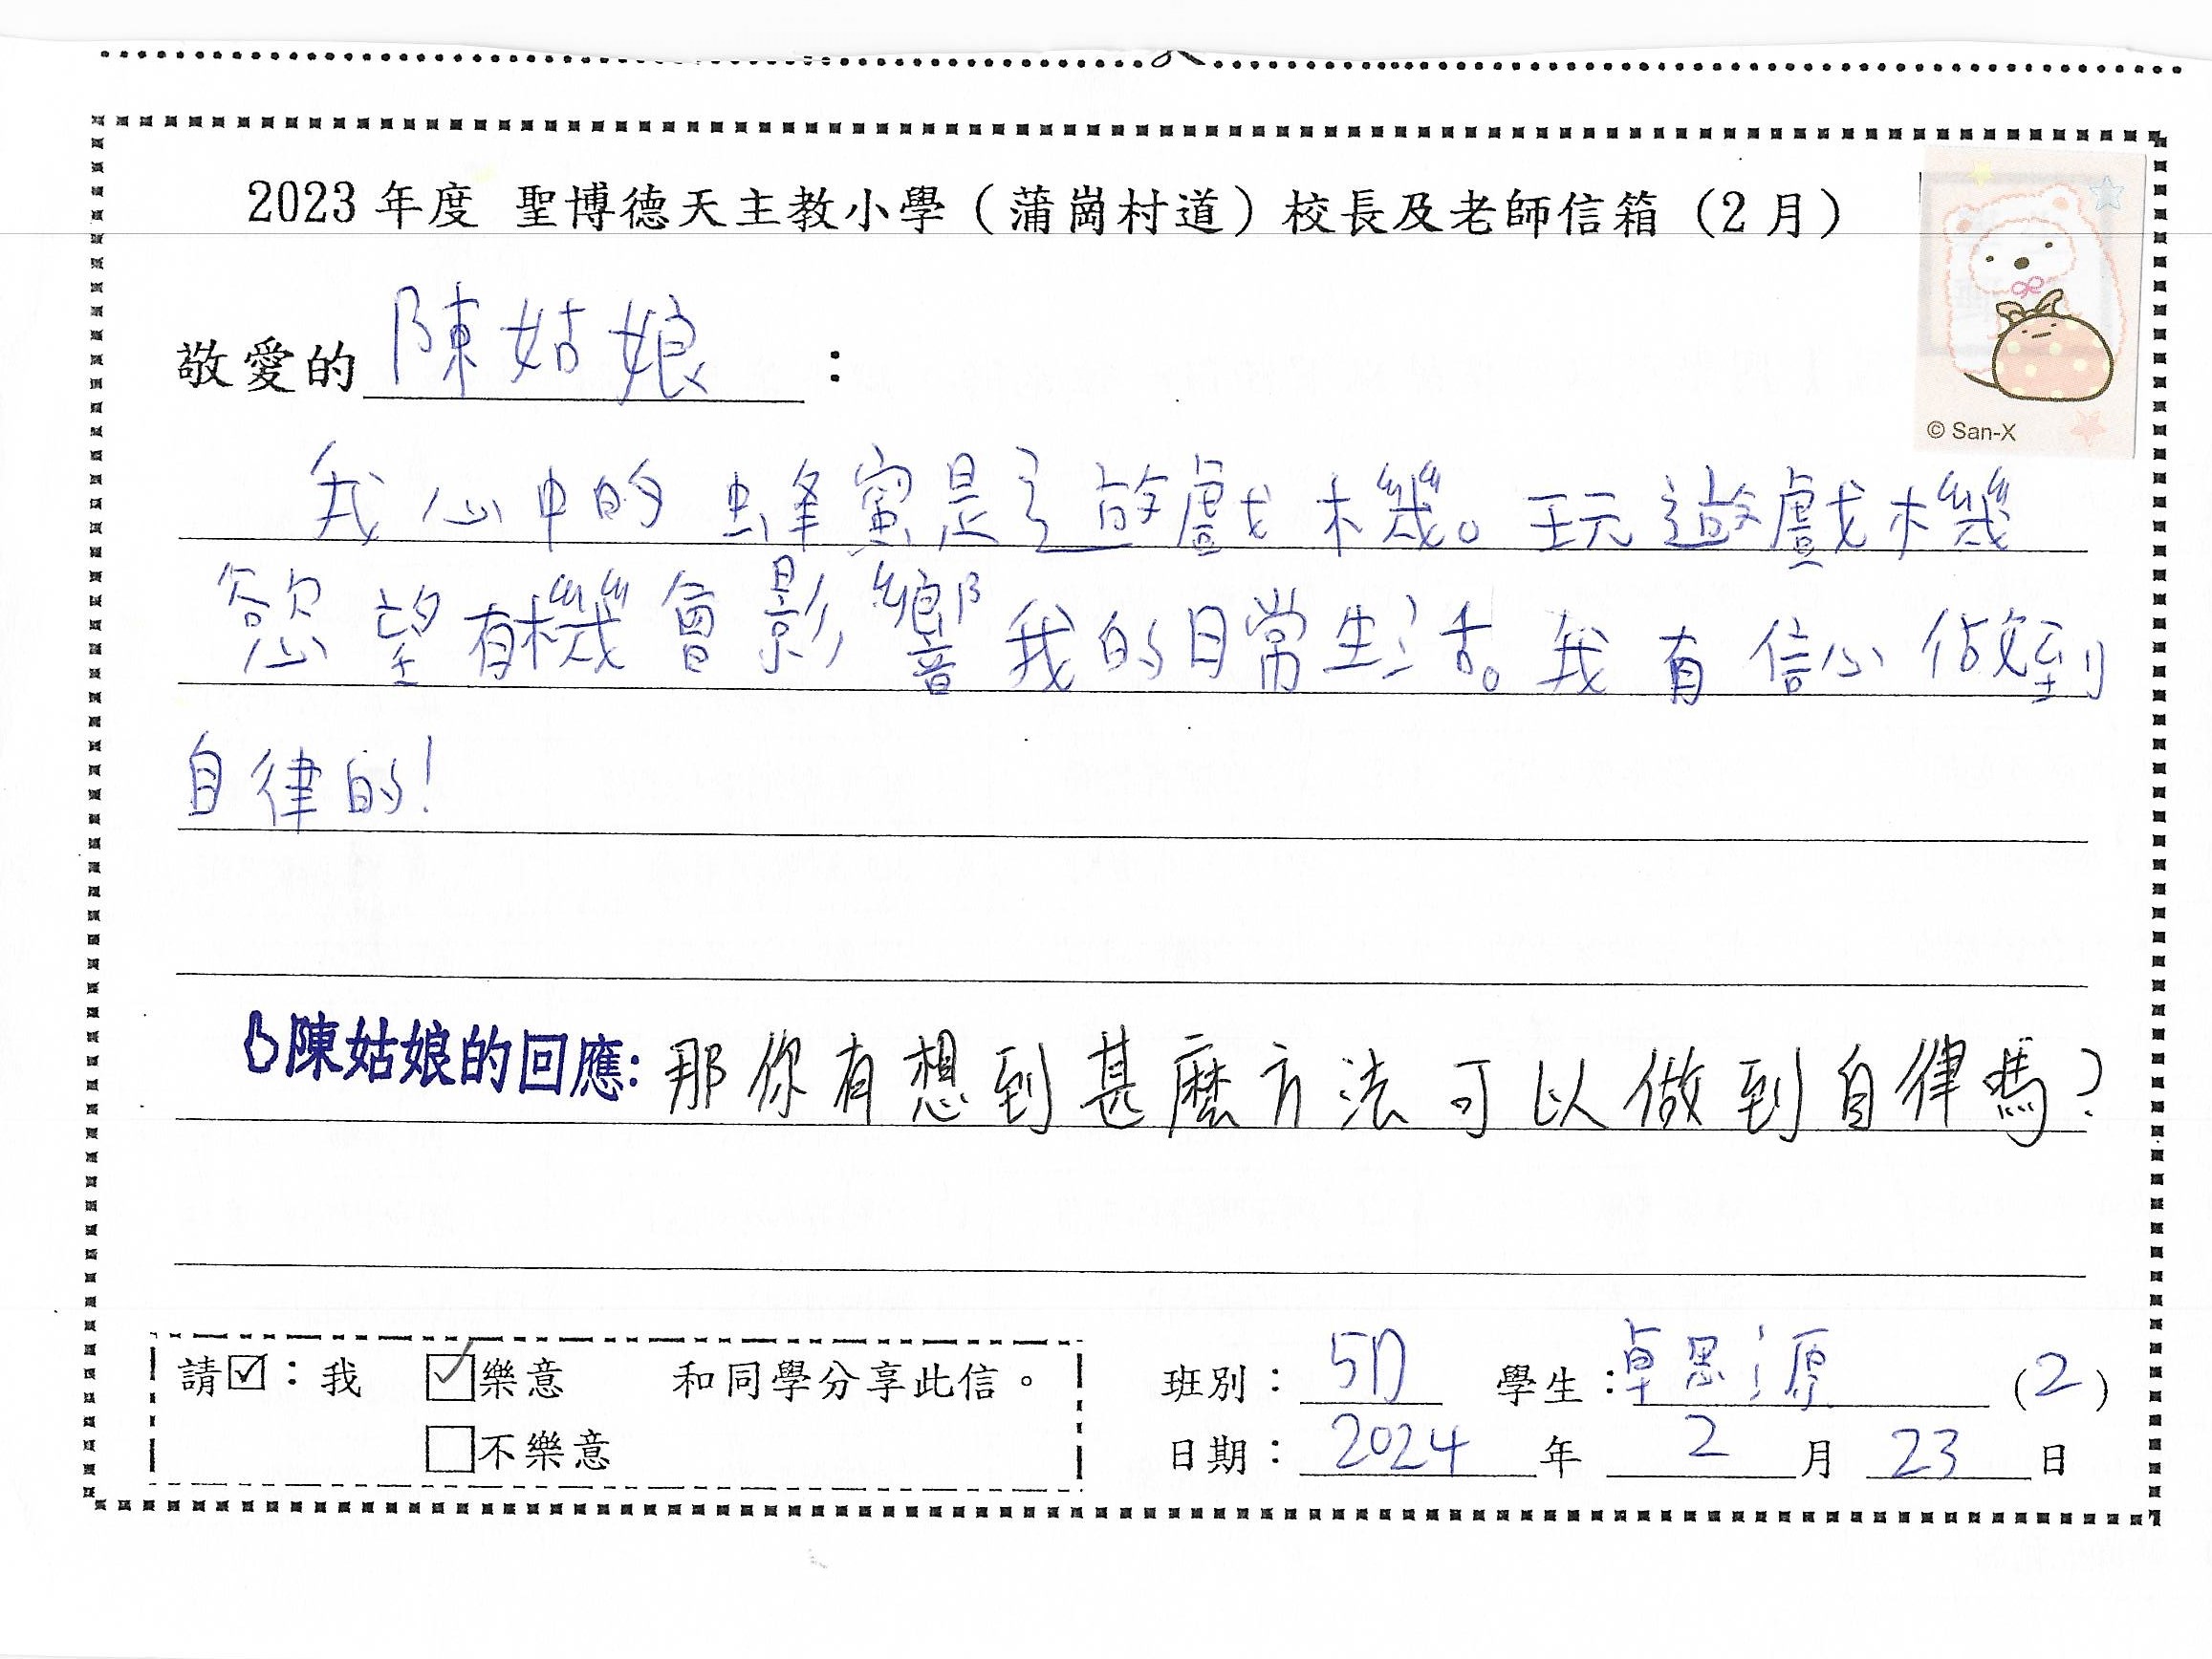 2023 年度 聖博德天主教小學（蒲崗村道）校長及老師信箱（2 月）
敬愛的 陳姑娘 ：
© San-X
我心中的蜂蜜是遊戲機。玩遊戲機
慾望有機會影響我的日常生活。我有信心做到
自律的!
陳姑娘的回應: 那你有想到甚麼方法可以做到自律嗎?
請☑：我 ☑樂意 和同學分享此信。 班別：5D 學生：卓思源 (2)
☐不樂意 日期：2024 年 2 月 23 日